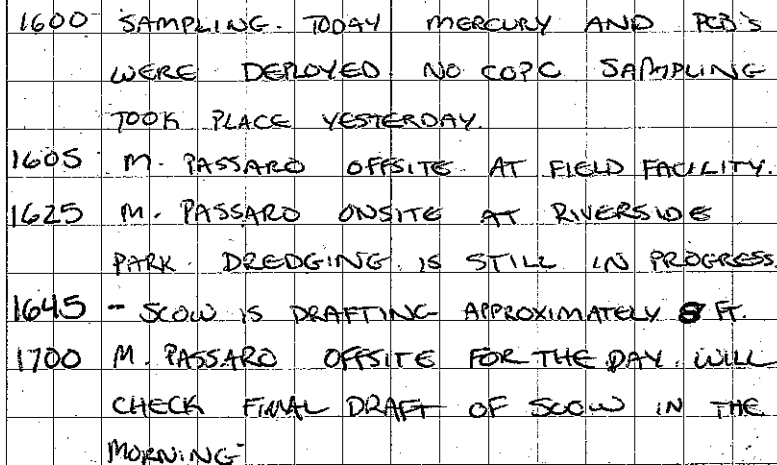 1600 SAMPLING. TODAY MERCURY AND PCB'S
WERE DEPLOYED. NO COPC SAMPLING
TOOK PLACE YESTERDAY.
1605 M. PASSARO OFFSITE AT FIELD FACILITY.
1625 M. PASSARO ONSITE AT RIVERSIDE
PARK. DREDGING IS STILL IN PROGRESS.
1645 - SCOW IS DRAFTING APPROXIMATELY 8 FT.
1700 M. PASSARO OFFSITE FOR THE DAY. WILL
CHECK FINAL DRAFT OF SCOW IN THE
MORNING